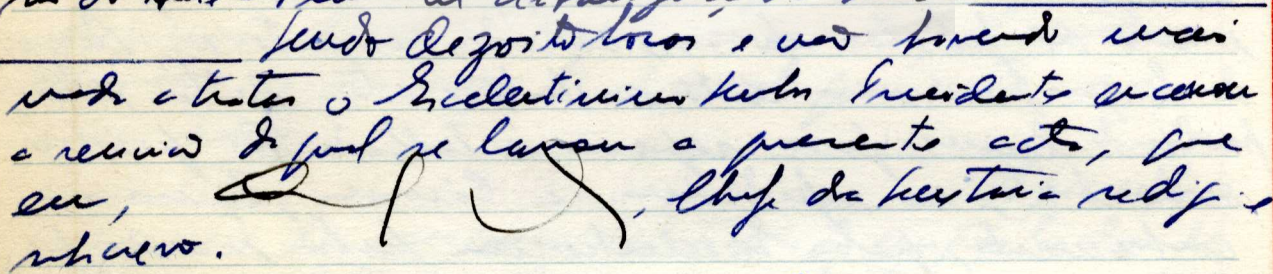 Sendo dezoito horas e não havendo mais
nada a tratar o Excelentíssimo Senhor Presidente encerrou
a reunião da qual se lavrou a presente acta, que
eu, , Chefe da Secretaria redigi e
subscrevo.